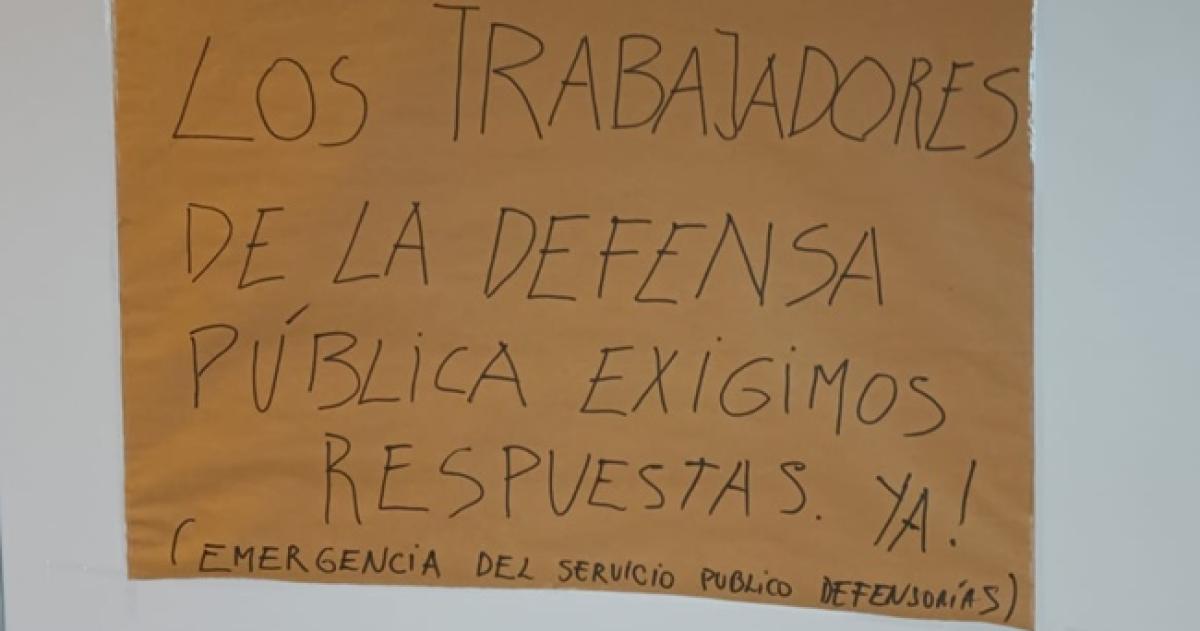 LOS TRABAJADORES
DE LA DEFENSA
PÚBLICA EXIGIMOS
RESPUESTAS. YA!
(EMERGENCIA DEL SERVICIO PUBLICO DEFENSORÍAS)